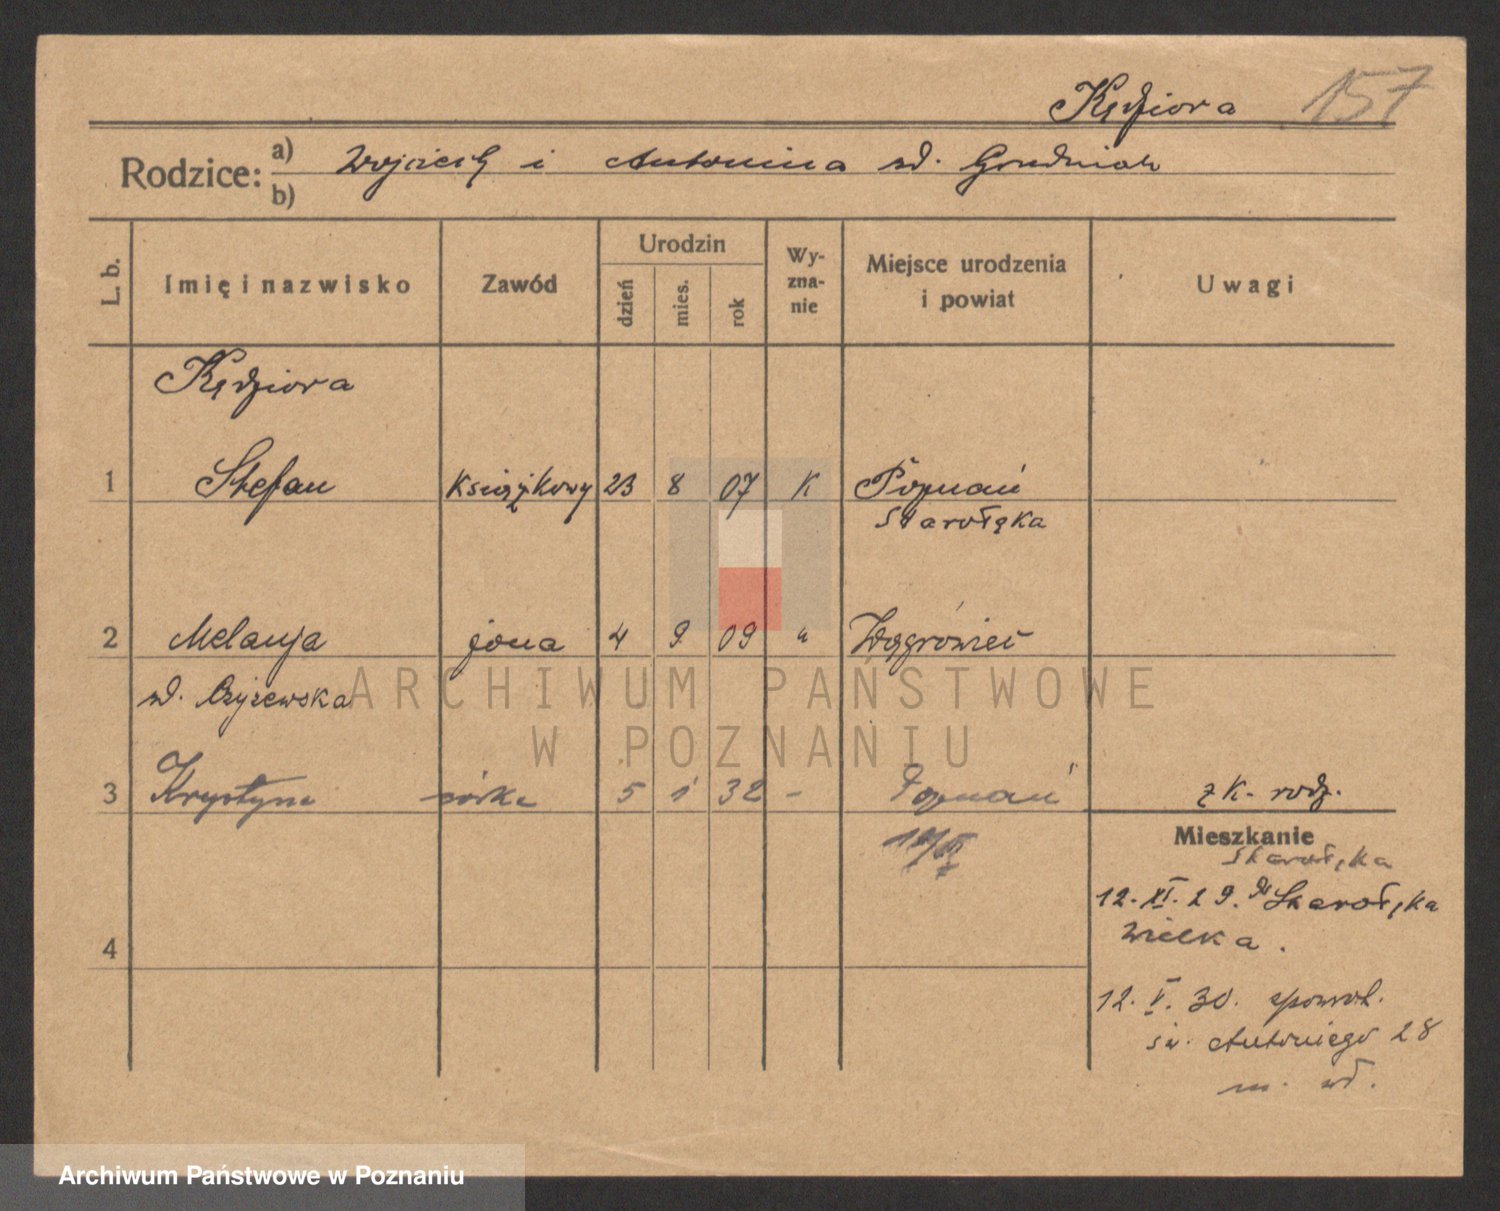 Kędziora 157
Rodzice: a) Wojciech i Antonina zd. Grudniak
b)
L. b. Imię i nazwisko Zawód Urodzin dzień mies. rok Wy-zna-nie Miejsce urodzenia i powiat Uwagi
Kędziora
1 Stefan Książkowy 23 8 07 K Poznań
Starołęka
2 Melanja żona 4 9 09 " Wągrówiec
zd. Czyżewska
3 Krystyna córka 5 1 32 - Poznań z k. rodz.
Mieszkanie
Starołęka
12. XI. 29. do Starołęka
Wielka.
4
12. V. 30. spowrot.
św. Antoniego 28
m. wł.
ARCHIWUM PAŃSTWOWE
W POZNANIU
Archiwum Państwowe w Poznaniu